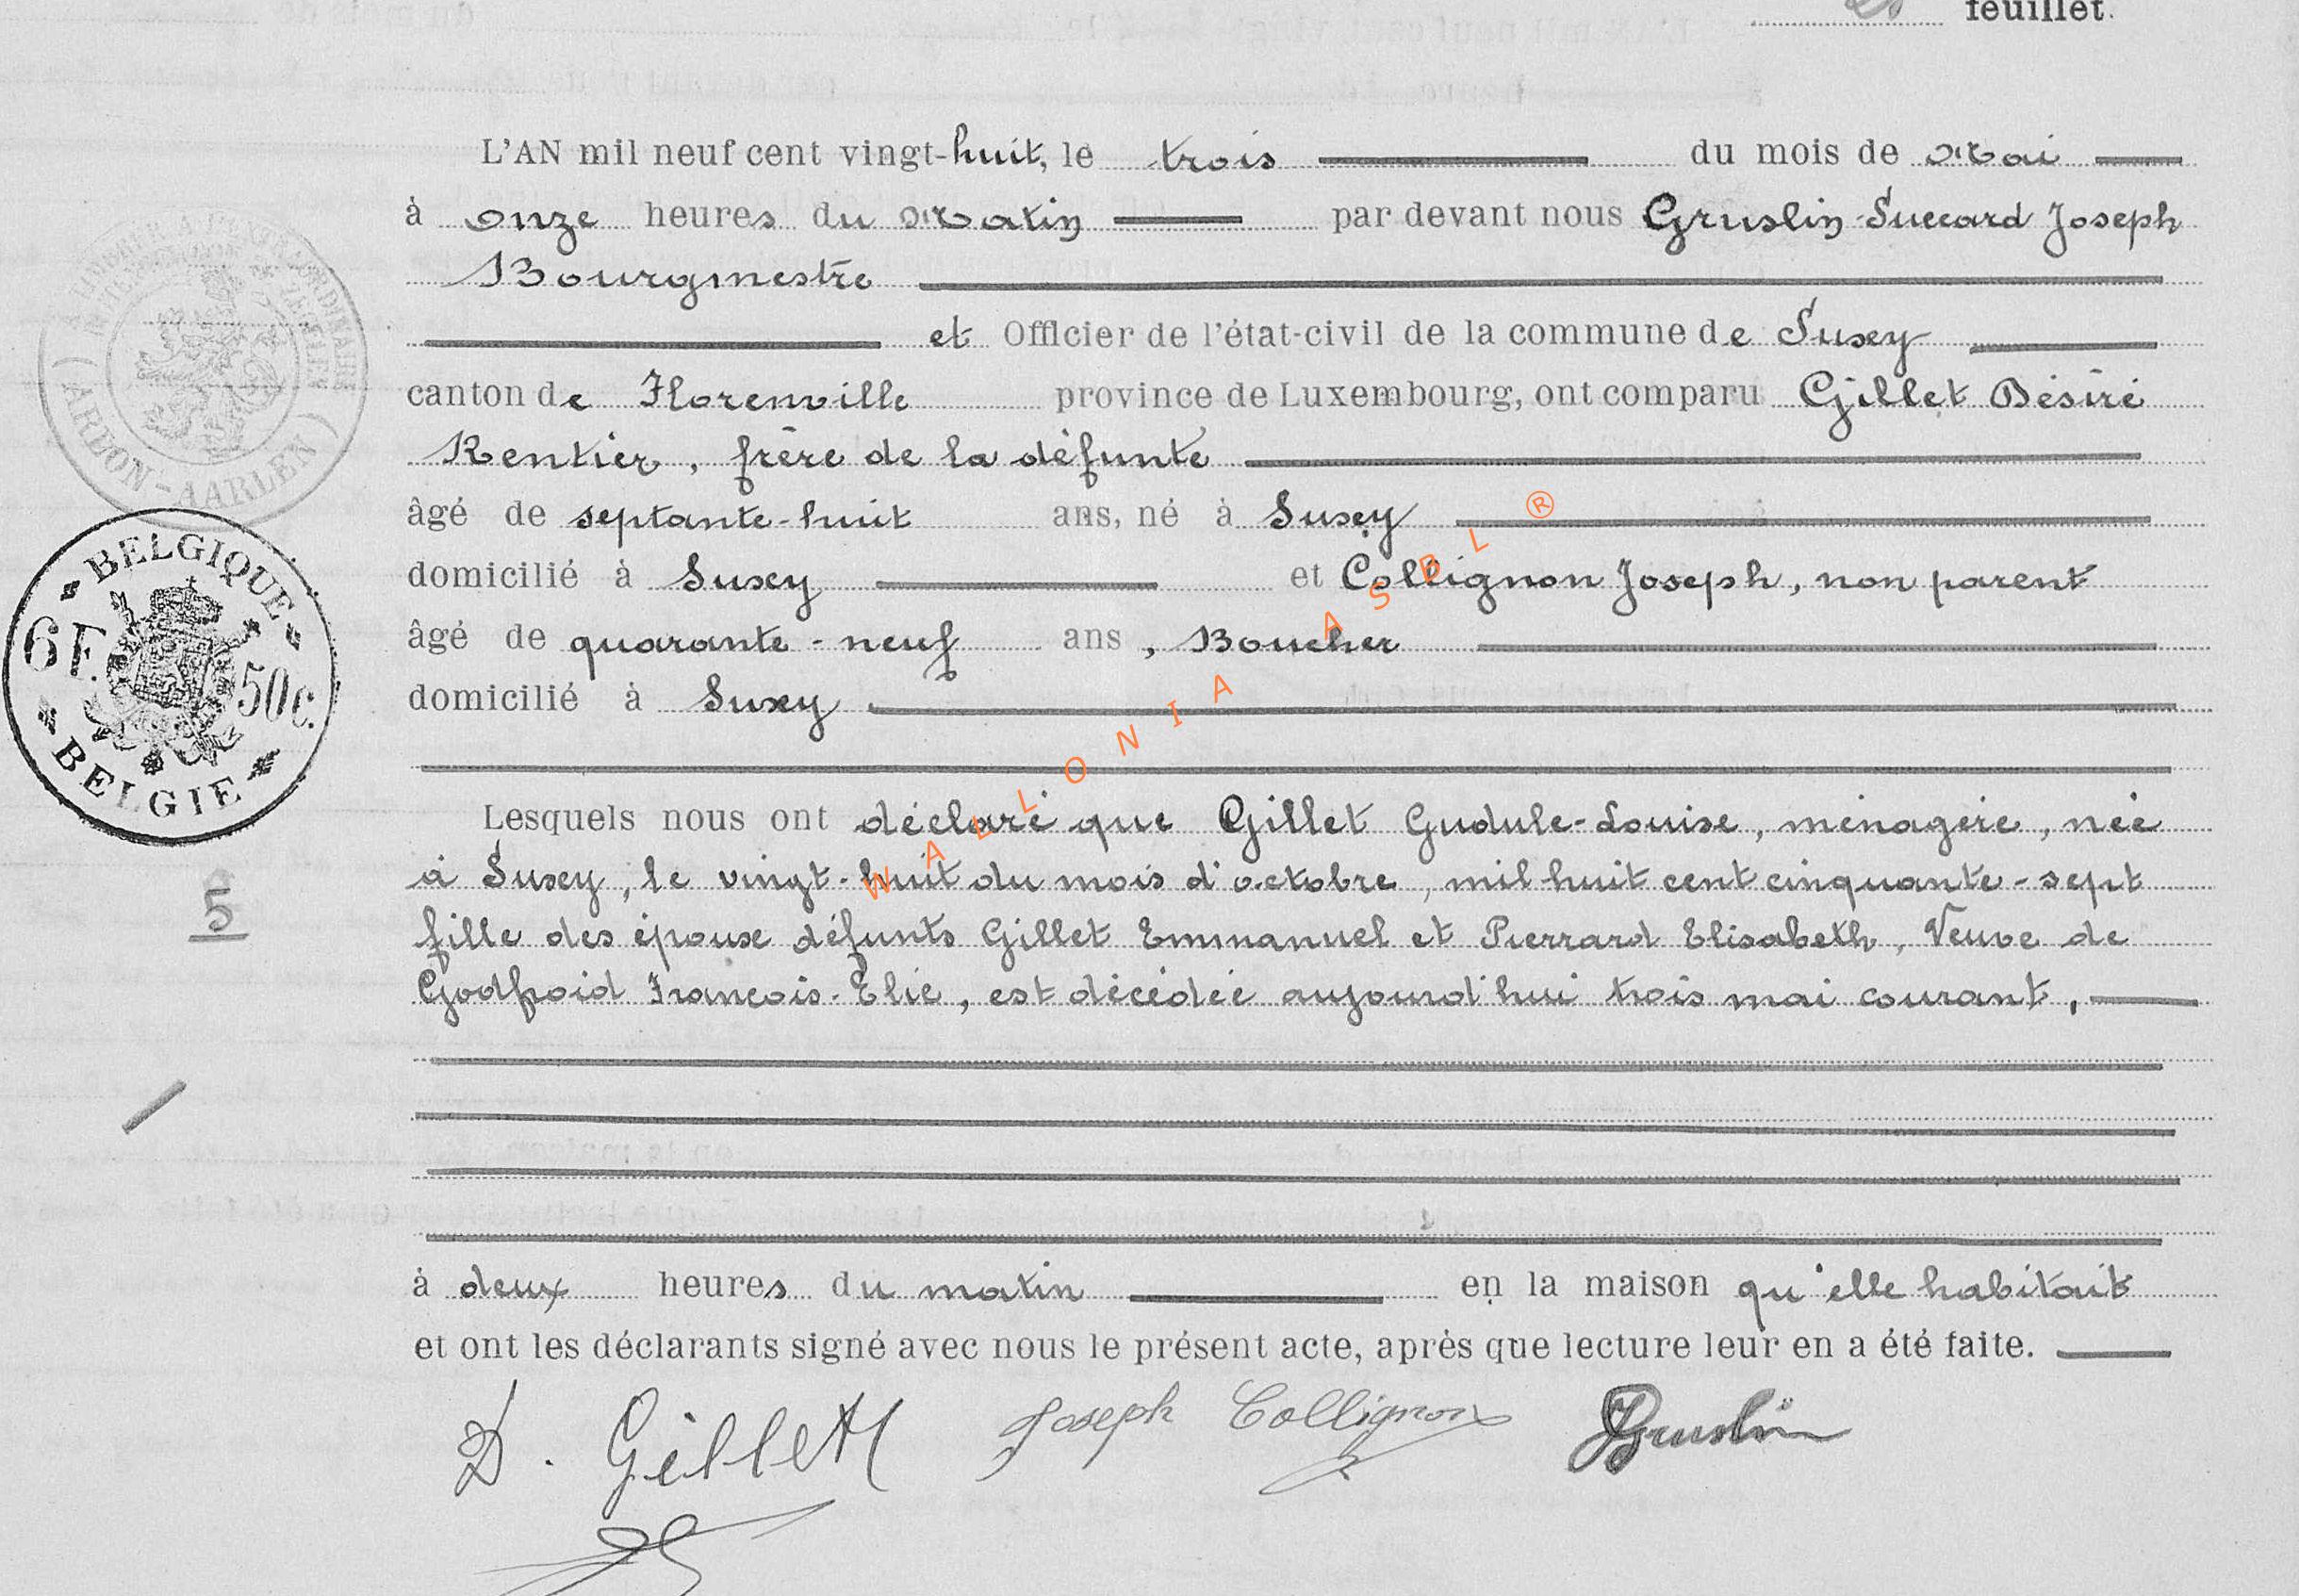 feuillet.
L'AN mil neuf cent vingt-huit, le trois du mois de Mai
à onze heures du Matin par devant nous Gruslin-Succard Joseph
Bourgmestre
et Officier de l'état-civil de la commune de Suxey
canton de Florenville province de Luxembourg, ont comparu Gillet Désiré
Rentier, frère de la défunte
âgé de septante-huit ans, né à Suxey
domicilié à Suxey et Collignon Joseph, non parent
âgé de quarante-neuf ans, Boucher
domicilié à Suxey
Lesquels nous ont déclaré que Gillet Gudule-Louise, ménagère, née
à Suxey, le vingt-huit du mois d'octobre, mil huit cent cinquante-sept
fille des époux défunts Gillet Emmanuel et Pierrard Elisabeth, Veuve de
Godfroid François-Elie, est décédée aujourd'hui trois mai courant,
à deux heures du matin en la maison qu'elle habitait
et ont les déclarants signé avec nous le présent acte, après que lecture leur en a été faite.
D. Gillet Joseph Collignon JGruslin
ARLON - AARLEN
BELGIQUE
6 F. 50 c.
BELGIE
5
WALLONIA ASBL ®